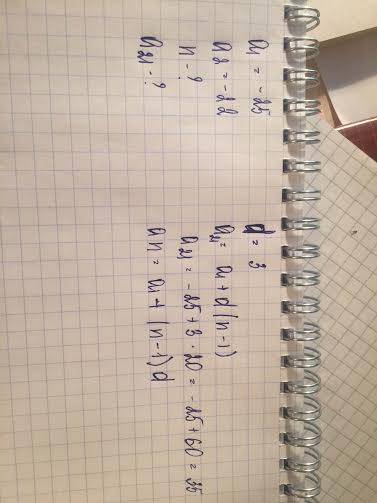 a₁ = -25
a₂ = -22
n - ?
a₂₁ - ?
d = 3
a₂₁ = a₁ + d(n-1)
a₂₁ = -25 + 3 · 20 = -25 + 60 = 35
an = a₁ + (n-1)d